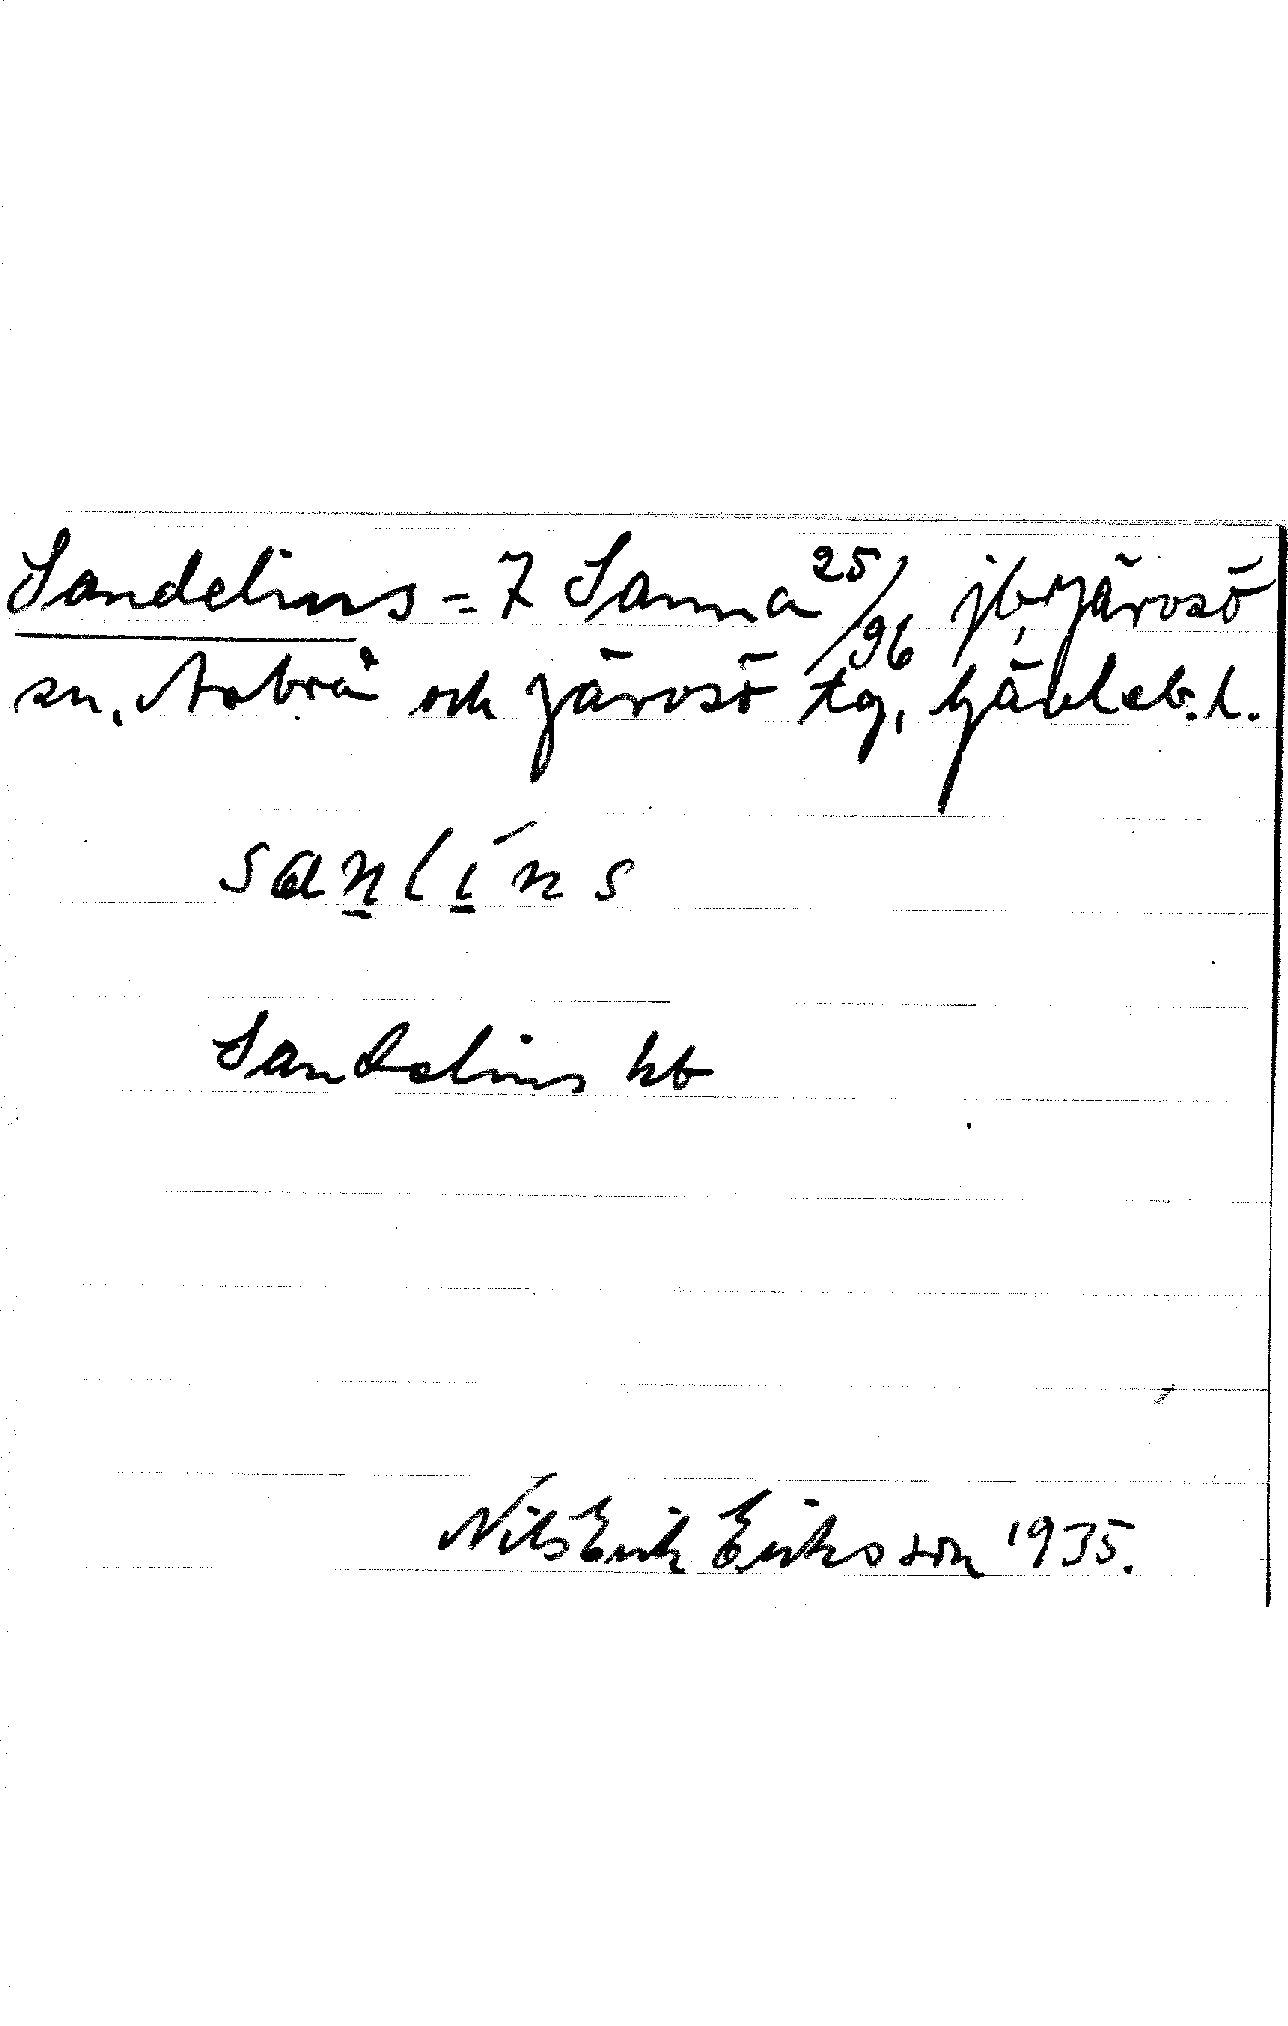 Sandelins = 7 Sanna 25/96 jb, Järvsö
sn, Arbrå och Järvsö tg, Gävleb. l.
sanlíns
Sandelins kb
Nils Erik Eriksson 1935.